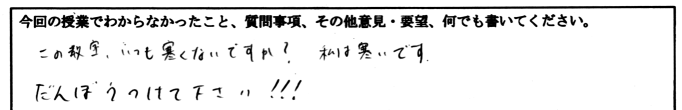 今回の授業でわからなかったこと、質問事項、その他意見・要望、何でも書いてください。
この教室、いつも寒くないですか? 私は寒いです.
だんぼうつけて下さい!!!